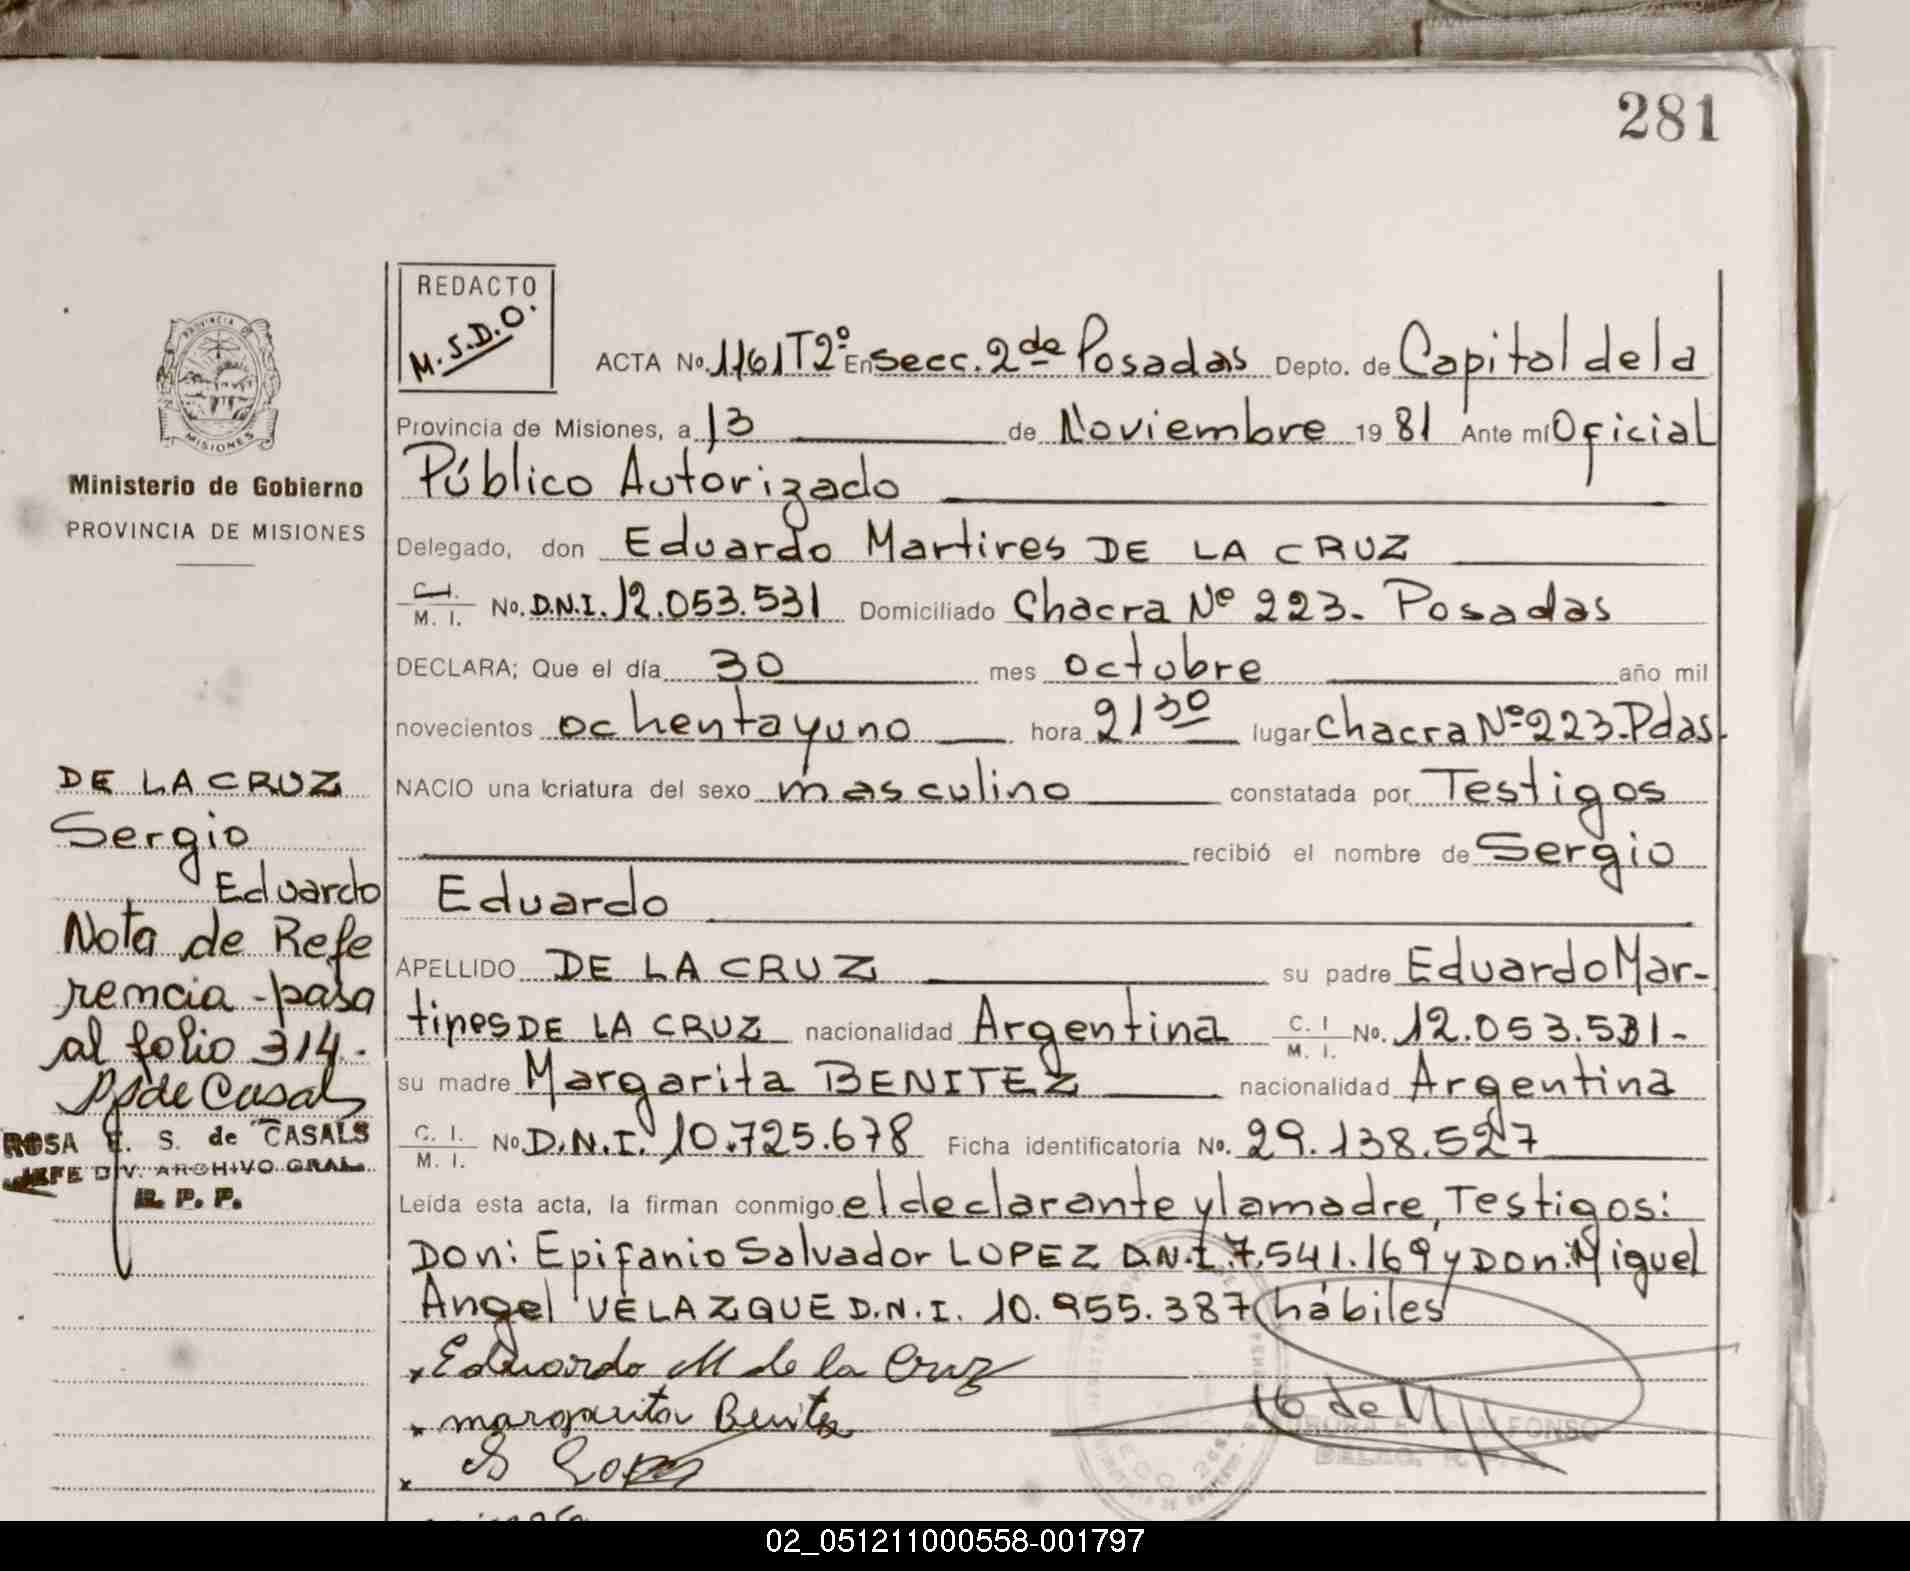 281
REDACTO
M.S.D.O.
ACTA No. 1161 T2º En secc. 2da Posadas Depto. de Capital de la
Provincia de Misiones, a 13 de Noviembre 1981 Ante mí Oficial
Público Autorizado
Delegado, don Eduardo Martires DE LA CRUZ
C.I. M. I. No. D.N.I. 12.053.531 Domiciliado Chacra Nº 223. Posadas
DECLARA; Que el día 30 mes octubre año mil
novecientos ochentayuno hora 21 30 lugar Chacra Nº 223. Pdas.
NACIO una criatura del sexo masculino constatada por Testigos
recibió el nombre de Sergio
Eduardo
APELLIDO DE LA CRUZ su padre Eduardo Mar-
tires DE LA CRUZ nacionalidad Argentina C. I M. I. No. 12.053.531-
su madre Margarita BENITEZ nacionalidad Argentina
C. I. M. I. No D.N.I. 10.725.678 Ficha identificatoria No. 29.138.527
Leída esta acta, la firman conmigo el declarante y la madre, Testigos:
Don: Epifanio Salvador LOPEZ D.N.I. 7.541.169 y Don: Miguel
Angel VELAZQUE D.N.I. 10.955.387 hábiles
x Eduardo M de la Cruz
x margarita Benitez
x Lopez
PROVINCIA DE
MISIONES
Ministerio de Gobierno
PROVINCIA DE MISIONES
DE LA CRUZ
Sergio
Eduardo
Nota de Refe
rencia - pasa
al folio 314.-
de Casals
ROSA E. S. de CASALS
JEFE DIV. ARCHIVO GRAL.
R. P. P.
02_051211000558-001797